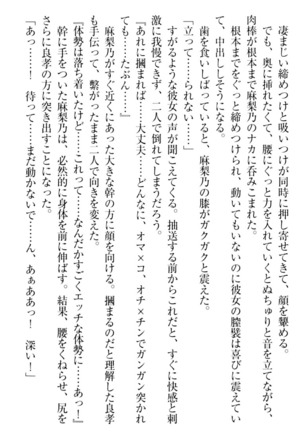 凄まじい締めつけと吸いつけが同時に押し寄せてきて、顔を顰める。
でも、奥に挿れたくて、腰にぐっと力を入れていくとぬちゅりと音を立てながら、
肉棒が根本まで麻梨乃のナカに呑みこまれた。
根本までをぐっと締めつけられ、動いてもいないのに彼女の膣襞は喜びに震えてい
て、中出ししそうになる。
「立って……られない……」
歯を食いしばっていると、麻梨乃の膝がガクガクと震えた。
すがるような彼女の声が聞こえてくる。抽送する前からこれだと、すぐに快感と刺
激に我慢できず、二人で倒れてしまうだろう。
「あれに摑まれば……大丈夫……どんなに、オマ×コ、オチ×チンでガンガン突かれ
ても……たぶん……」
麻梨乃がすぐ近くにあった大きな幹の方に顔を向ける。摑まるのだと理解した良孝
も手伝って、繫がったまま二人で向きを変えた。
「体勢は落ち着いたけど……これって……なんだかすごくエッチな体勢に……あっ！」
幹に手をついた麻梨乃は、必然的に身体を前に伸ばす。結果、腰をくねらせ、尻を
さらに良孝の方に突き出すことになった。
「あっ……！　待って……まだ動かないで……ん、あぁああっ！　深い！」